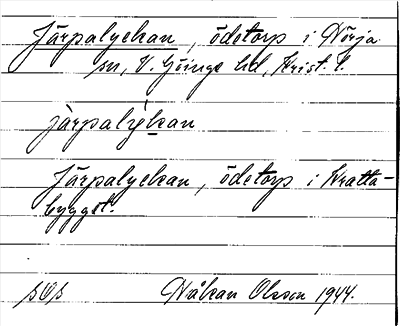 Järpalyckan, ödetorp i Nörja
sn, V. Göinge hd, Krist. l.
järpalỳkan
Järpalyckan, ödetorp i Wratta-
bygget.
Håkan Olsson 1944.